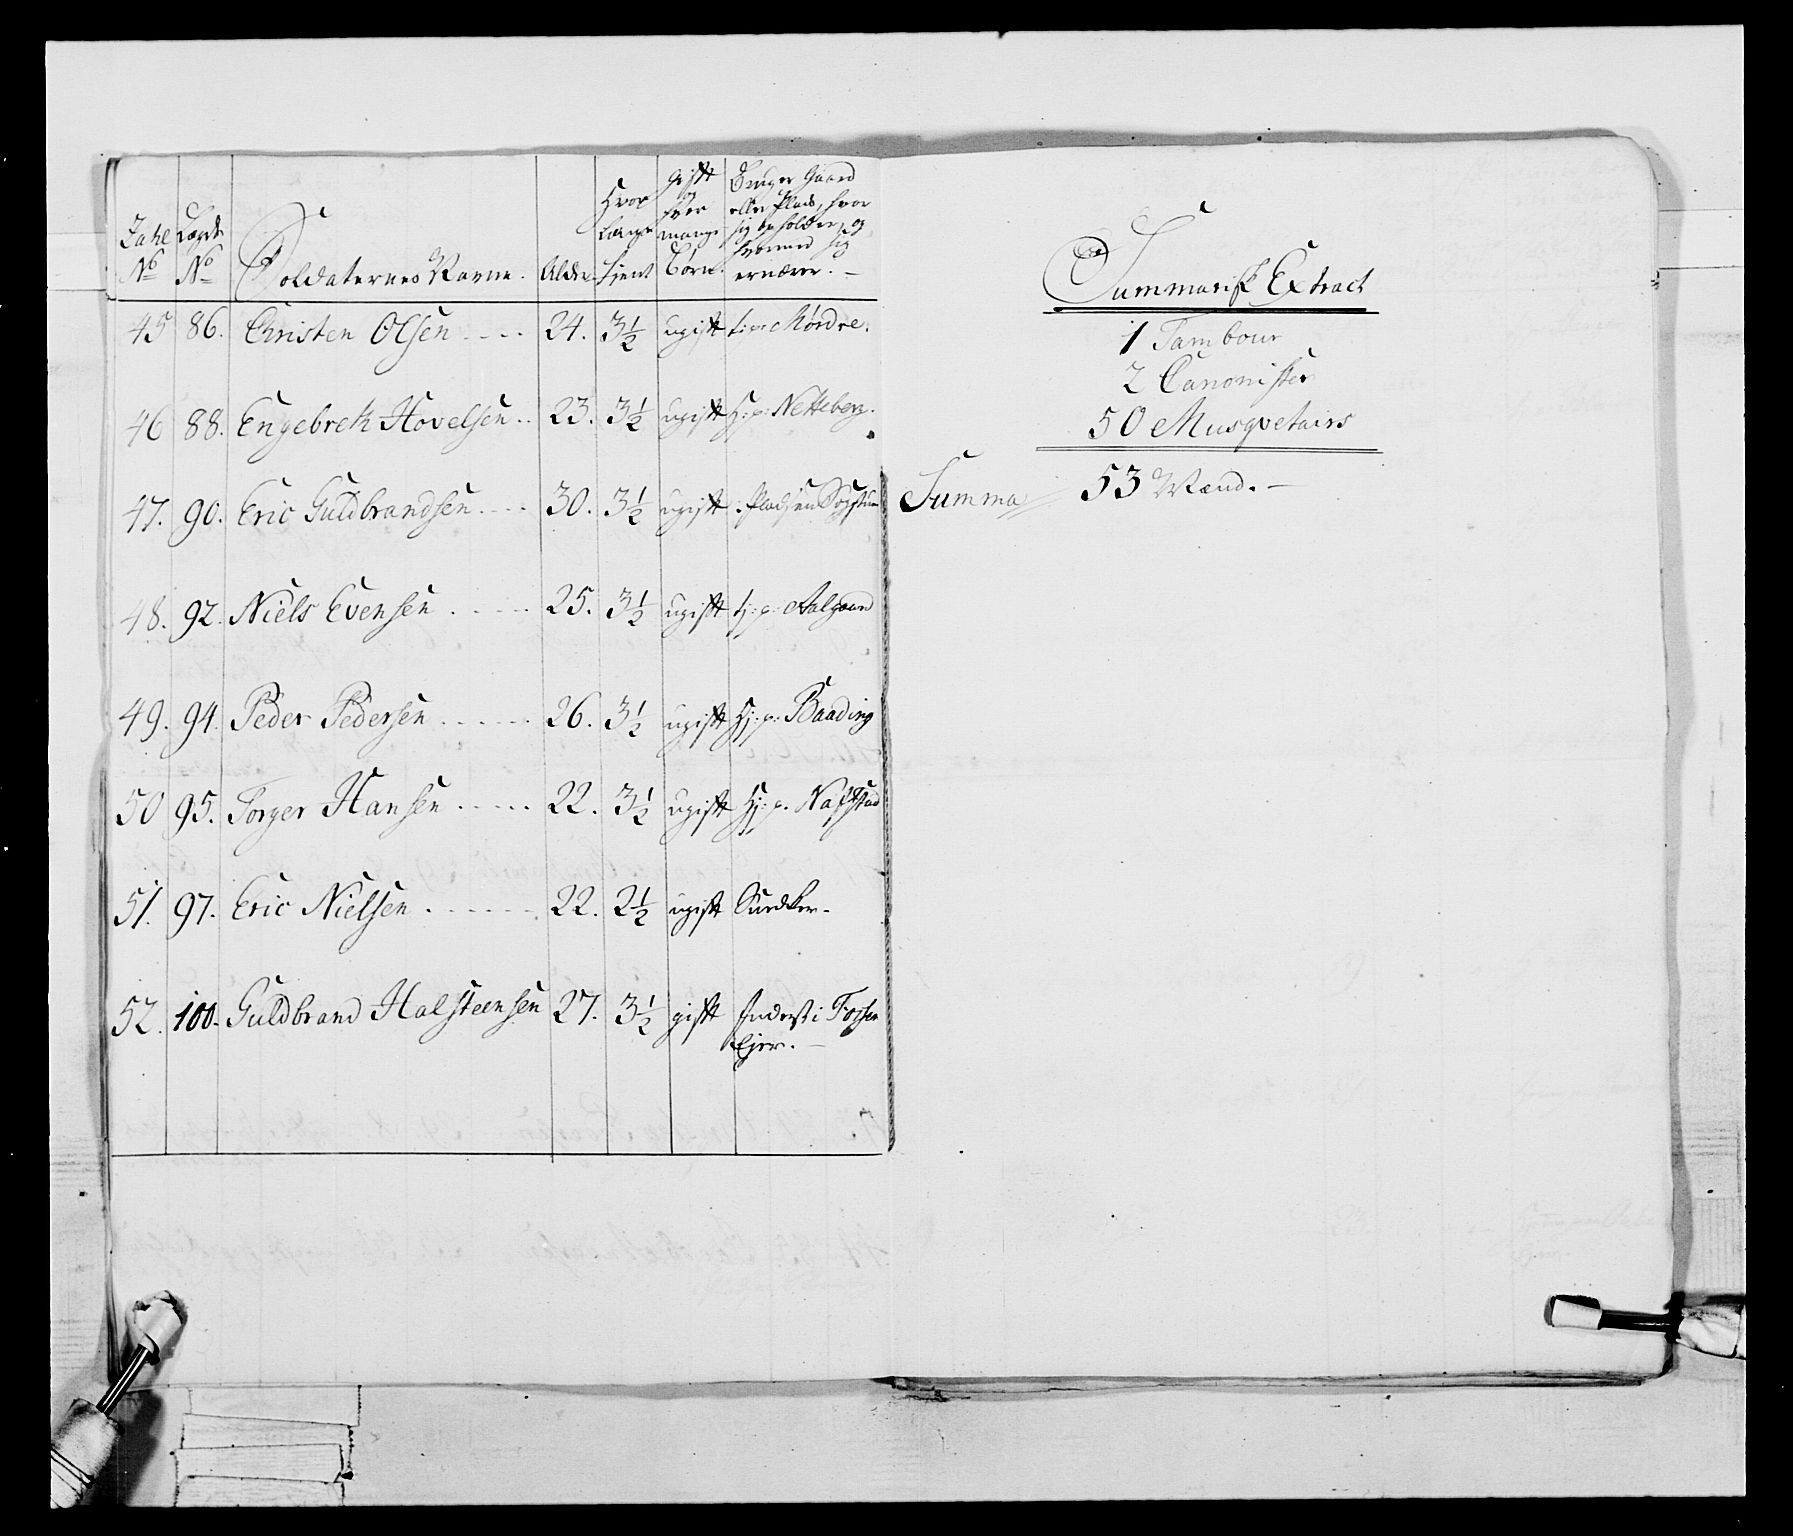 Tahl No
Lægd No
Soldaternes Navne.
Alder
Hvor længe tient
Gift og hvor mange Børn.
Bruger Gaard eller Plads, hvor sig opholder, og hvormed sig ernærer. —
45 86. Christen Olsen . . . . 24. 3 1/2 ugift t: p: Mørdre.
46 88. Engebreth Hovelsen . . 23. 3 1/2 ugift Hj: p: Netteberg.
47. 90. Eric Guldbrandsen . . . . 30. 3 1/2 ugift Pladsen
48. 92. Niels Evensen . . . . . 25. 3 1/2 ugift tj: p: Aalgaard
49. 94. Peder Pedersen . . . . . . 26. 3 1/2 ugift Hj: p: Baading
50 95. Torger Hansen . . . . . 22. 3 1/2 ugift Hj: p. Nafstad
51. 97. Eric Nielsen . . . . . . . 22. 2 1/2 ugift Snedker.
52. 100. Guldbrand Halsteensen 27. 3 1/2 gift Inderst i
Ejer. —
Summarisk Extract
1 Tambour
2 Canonister
50 Musqvetairs
Summa 53 Mand. —